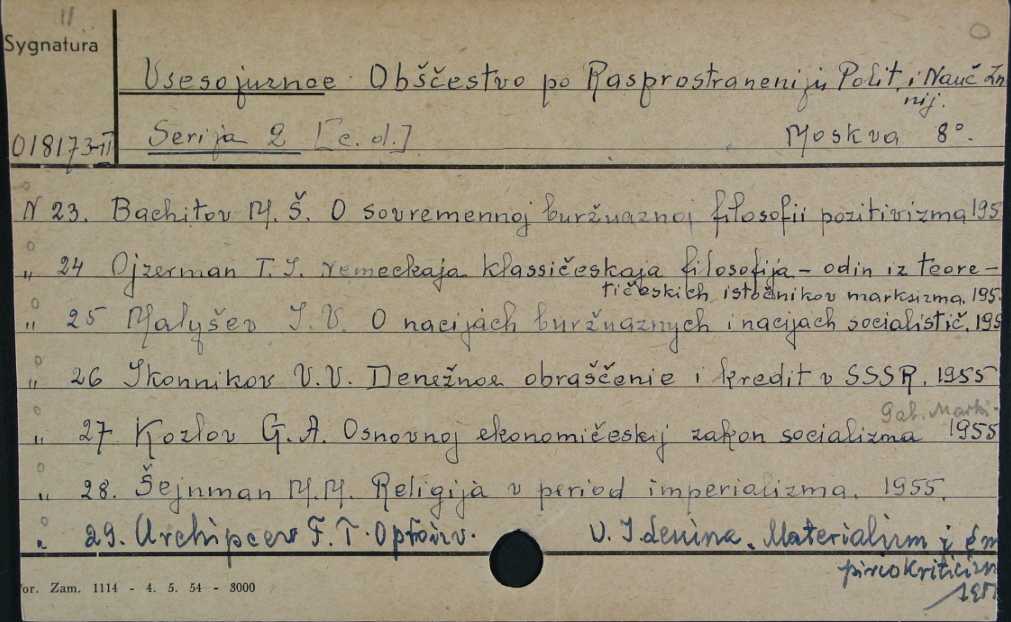 II
Sygnatura
Vsesojuznoe Obščestvo po Rasprostraneniju Polit. i Nauč Zn
nij.
018173-II Serija 2 [c. d.] Moskva 8°.
N 23. Bachitov M. Š. O sovremennoj buržuaznoj filosofii pozitivizma 195
„ 24 Ojzerman T. I. Nemeckaja klassičeskaja filosofija – odin iz teore–
tičeskich istočnikov marksizma. 195
„ 25 Malyšev I. V. O nacijach buržuaznych i nacijach socialistič. 195
„ 26 Ikonnikov V. V. Denežnoe obraščenie i kredit v SSSR. 1955
Gab. Marks.
„ 27 Kozlov G. A. Osnovnoj ekonomičeskij zakon socializma 1955
„ 28. Šejnman M. M. Religija v period imperializma. 1955.
„ 29. Archipcev F. T. V. I. Lenina „Materializm i Em
piriokriticizm
195
for. Zam. 1114 - 4. 5. 54 - 8000